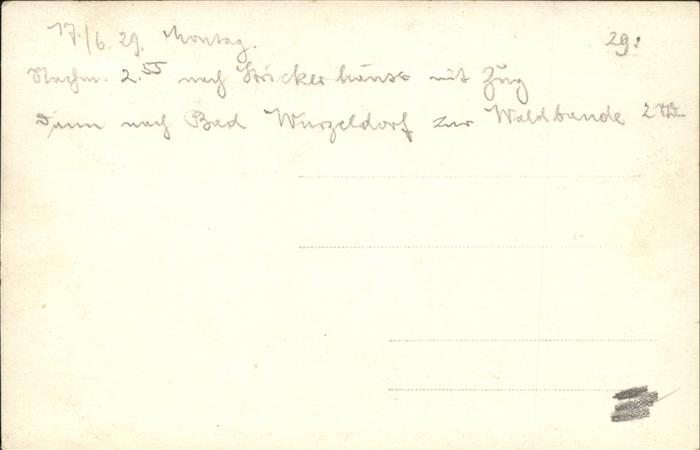 17./6. 29. Montag. 29:
Nachm. 2.55 nach Strickerhäuser mit Zug
Dann nach Bad Wurzelsdorf zur Waldbaude